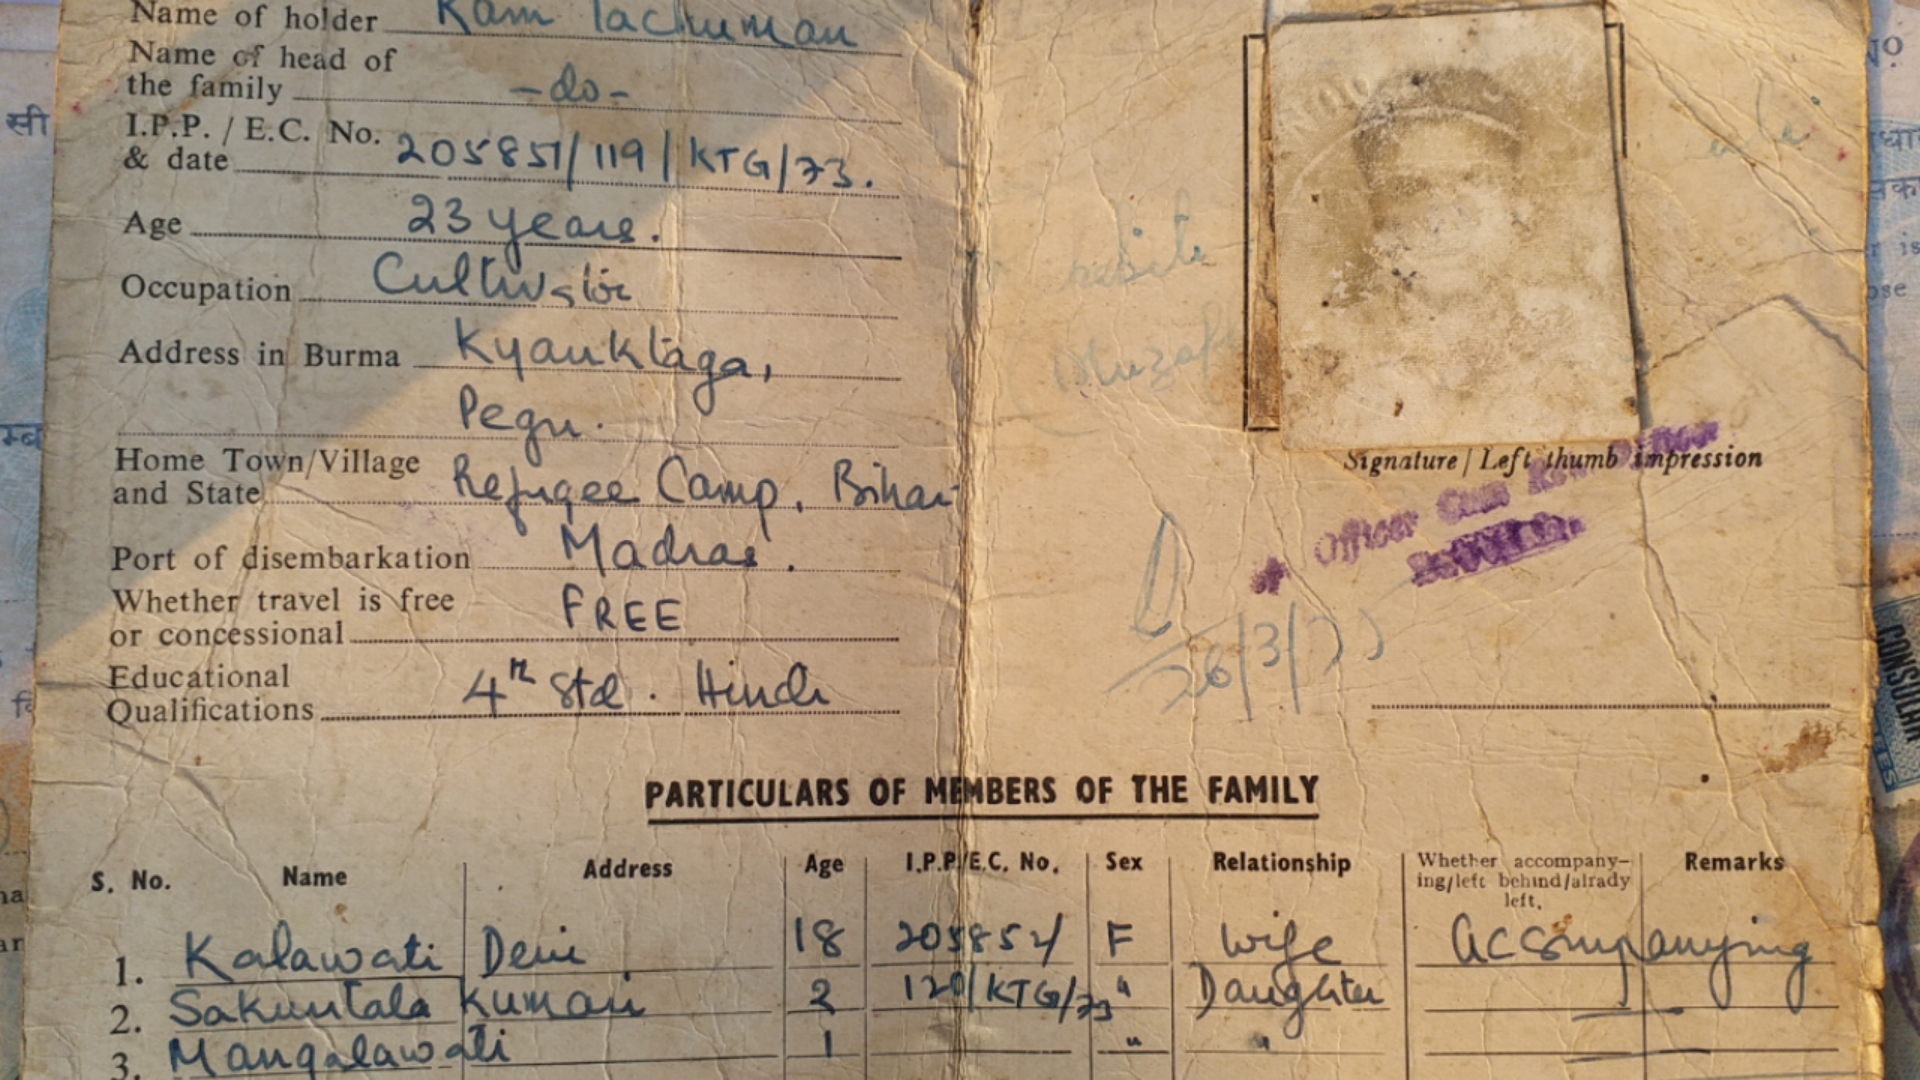 Name of holder Ram lachuman
Name of head of
the family -do-
I.P.P. / E.C. No.
& date 205851/119/KTG/73.
Age 23 years.
Occupation Cultivator
Address in Burma Kyauktaga,
Pegu.
Home Town/Village
and State Refugee Camp, Bihar
Port of disembarkation Madras.
Whether travel is free
or concessional FREE
Educational
Qualifications 4th Std. Hindi
Signature/Left thumb impression
Officer Cum
26/3/73
PARTICULARS OF MEMBERS OF THE FAMILY
S. No. Name Address Age I.P.P/E.C. No. Sex Relationship Whether accompany-
ing/left behind/alrady
left. Remarks
1. Kalawati Devi 18 205852/ F Wife accompanying
2. Sakuntala Kumari 2 120/KTG/73 " Daughter
3. Mangalawati 1 " "
CONSULAR